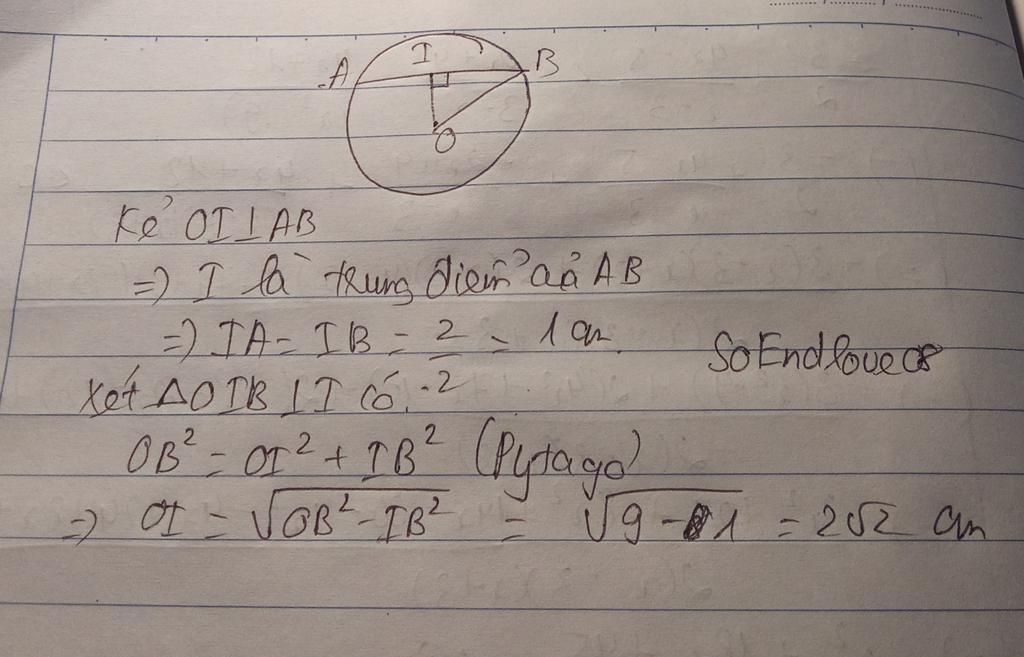 A I B
O
Kẻ OI⊥AB
=> I là trung điểm của AB
=> IA = IB = 2/2 = 1 cm
SoEndlove
Xét ΔOIB ⊥ I có:
OB² = OI² + IB² (Pytago)
=> OI = √(OB² - IB²) = √(9 - 1) = 2√2 cm